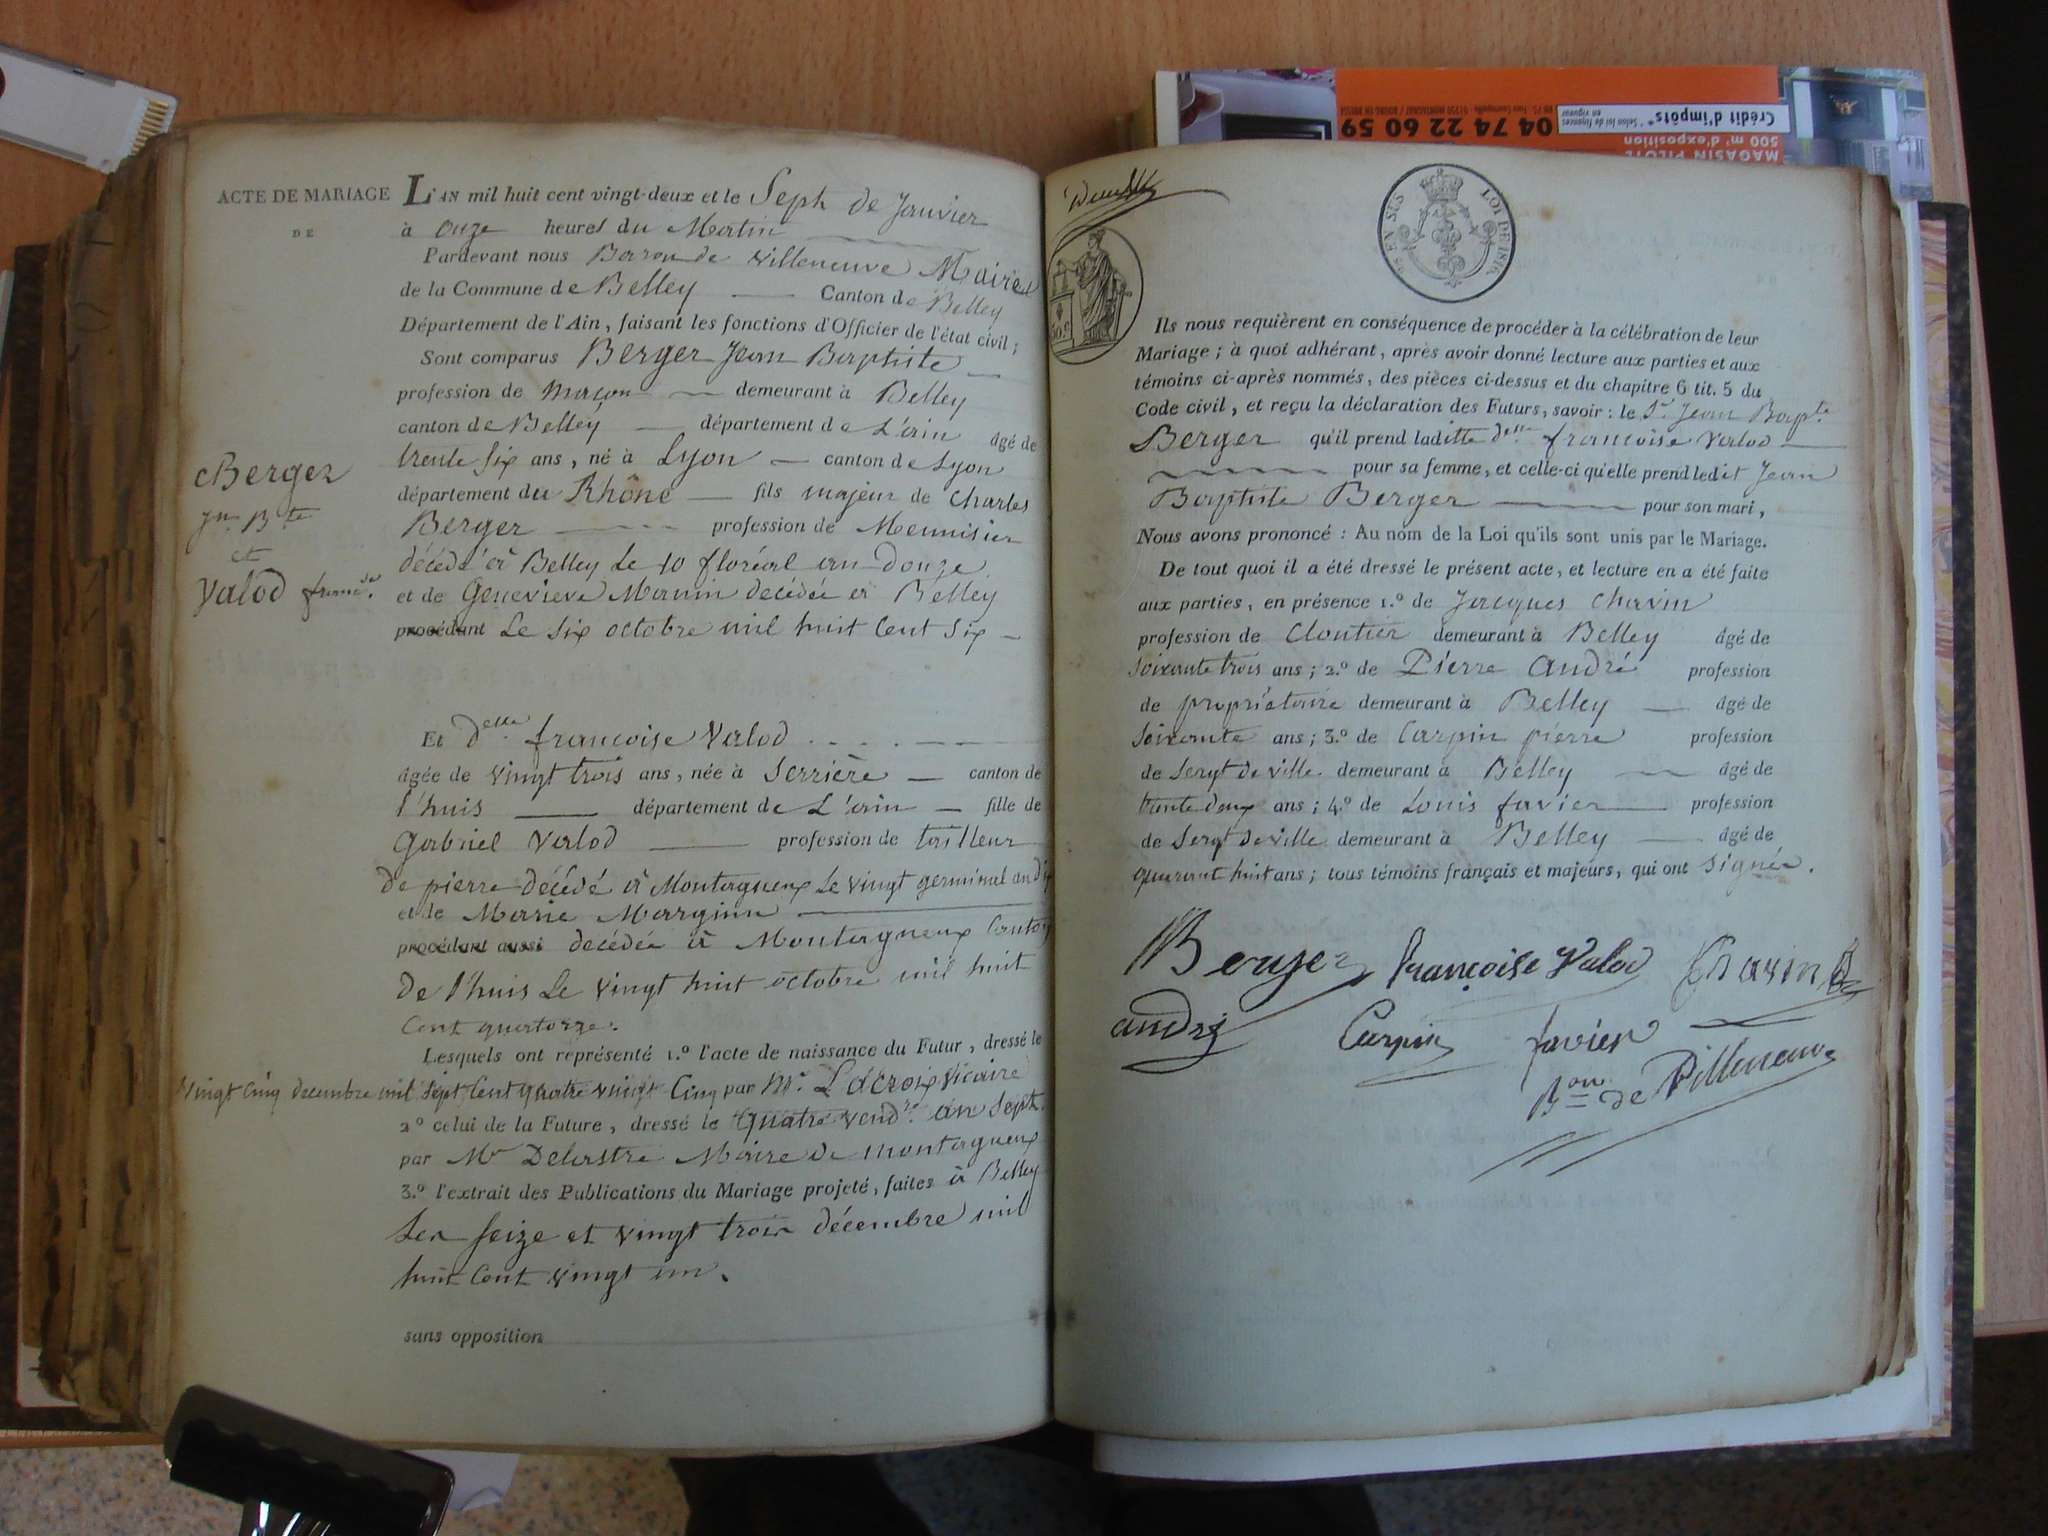 ACTE DE MARIAGE
DE
Berger
Jn. Bte
et
Valod franc.se
L'AN mil huit cent vingt-deux et le Sept de Janvier
à onze heures du Matin
Pardevant nous Baron de Villeneuve Maire
de la Commune de Belley Canton de Belley
Département de l'Ain, faisant les fonctions d'Officier de l'état civil;
Sont comparus Berger Jean Baptiste
profession de maçon demeurant à Belley
canton de Belley département de L'ain âgé de
trente six ans, né à Lyon canton de Lyon
département du Rhône fils majeur de Charles
Berger profession de Menuisier
décédé à Belley le 10 floréal an douze
et de Genevieve Manin decédée à Belley
procédant Le Six octobre mil huit Cent Six
Et delle francoise Valod
âgée de vingt trois ans, née à Serrière canton de
l'huis département de L'ain fille de
Gabriel Valod profession de tailleur
de pierre décédé à Montagneux Le vingt germinal an dix
et de Marie Marginn
procédant aussi decédée à Montagneux Canton
de l'huis Le vingt huit octobre mil huit
Cent quatorze.
Lesquels ont représenté 1.º l'acte de naissance du Futur, dressé le
vingt Cinq decembre mil Sept Cent quatre vingt Cinq par Mr. Lacroix Vicaire
2º celui de la Future, dressé le Quatre vend.re an Sept
par Mr Delastre Maire de montagneux
3.º l'extrait des Publications du Mariage projeté, faites à Belley
Les Seize et vingt trois décembre mil
huit Cent vingt un.
sans opposition
MAGASIN PILOTE
500 m² d'exposition
Crédit d'impôts*
* Selon loi de finances
en vigueur
04 74 22 60 59
LOI DE 1816
EN SUS
50c
Ils nous requièrent en conséquence de procéder à la célébration de leur
Mariage; à quoi adhérant, après avoir donné lecture aux parties et aux
témoins ci-après nommés, des pièces ci-dessus et du chapitre 6 tit. 5 du
Code civil, et reçu la déclaration des Futurs, savoir: le Sr Jean Bapte
Berger qu'il prend laditte delle francoise Valod
pour sa femme, et celle-ci qu'elle prend ledit Jean
Baptiste Berger pour son mari,
Nous avons prononcé: Au nom de la Loi qu'ils sont unis par le Mariage.
De tout quoi il a été dressé le présent acte, et lecture en a été faite
aux parties, en présence 1.º de Jacques Chavin
profession de Cloutier demeurant à Belley âgé de
soixante trois ans; 2.º de Pierre andré profession
de propriétaire demeurant à Belley âgé de
Soixante ans; 3.º de Carpin pierre profession
de Sergt de ville demeurant à Belley âgé de
trente deux ans; 4.º de Louis favier profession
de Sergt de ville demeurant à Belley âgé de
quarant huit ans; tous témoins français et majeurs, qui ont signés.
Berger françoise Valod Chavin
andré Carpin favier
Bon de Villeneuve